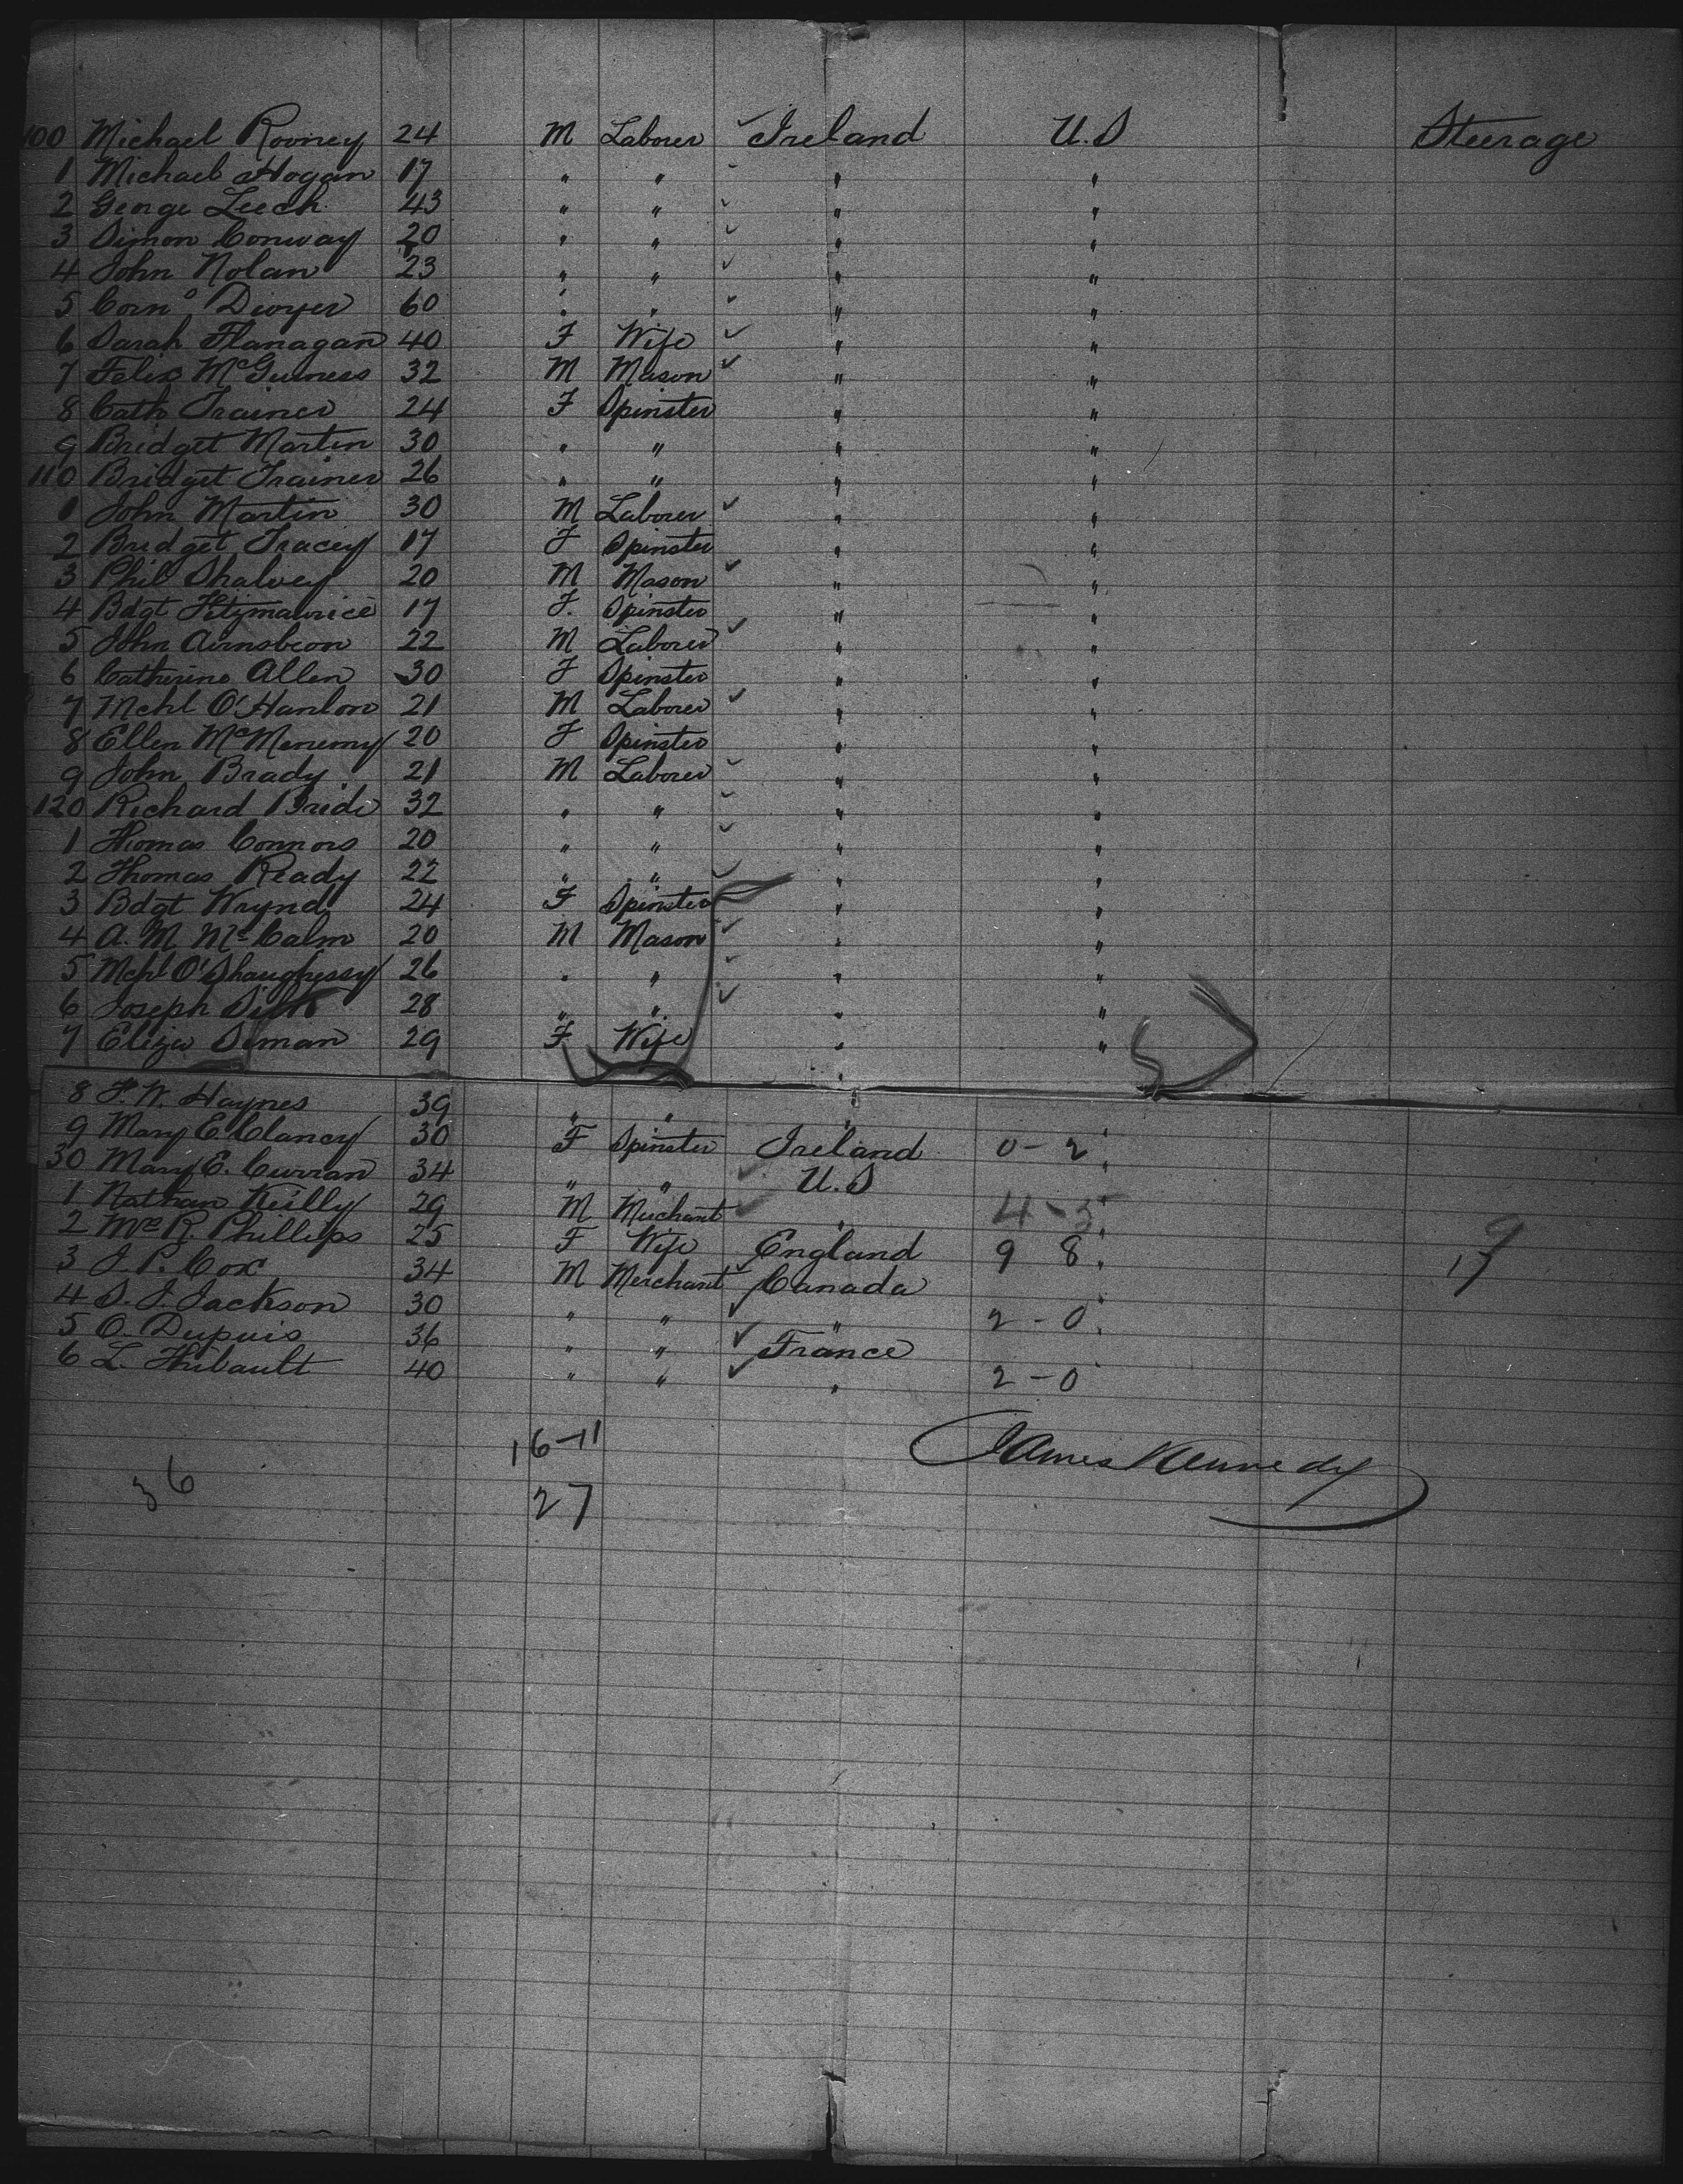 100 Michael Rooney 24 M Laborer ✓ Ireland U.S Steerage
1 Michael Hogan 17 " " " "
2 George Leech 43 " " ✓ " "
3 Simon Conway 20 " " ✓ " "
4 John Nolan 23 " " ✓ " "
5 Corn° Dwyer 60 " " ✓ " "
6 Sarah Flanagan 40 F Wife ✓ " "
7 Felix McGuiness 32 M Mason ✓ " "
8 Cath Trainer 24 F Spinster " "
9 Bridget Martin 30 " " " "
110 Bridget Trainer 26 " " " "
1 John Martin 30 M Laborer ✓ " "
2 Bridget Tracey 17 F Spinster " "
3 Phil Shalvey 20 M Mason ✓ " "
4 Bdgt Fitzmaurice 17 F. Spinster " "
5 John 22 M Laborer ✓ " "
6 Catherine Allen 30 F Spinster " "
7 Mchl O'Hanlon 21 M Laborer ✓ " "
8 Ellen McMenemy 20 F Spinster " "
9 John Brady 21 M Laborer ✓ " "
120 Richard Bride 32 " " ✓ " "
1 Thomas Connors 20 " " ✓ " "
2 Thomas Ready 22 " " ✓ " "
3 Bdgt Wrynd 24 F Spinster " "
4 A. M McCalm 20 M Mason ✓ " "
5 Mchl O'Shaughessy 26 " " ✓ " "
6 Joseph 28 " " ✓ " "
7 Eliza 29 F Wife " "
8 F. W. Haynes 39 " " "
9 Mary E Clancy 30 F Spinster Ireland 0-2
30 Mary E. Curran 34 " " ✓ U.S
1 Nathan Reilly 29 M Merchant ✓ " 4-3
2 Mrs R. Phillips 25 F Wife England 9 8 9
3 J. P. Cox 34 M Merchant ✓ Canada 17
4 S. J. Jackson 30 " " ✓ " 2-0
5 O. Dupuis 36 " " ✓ France
6 L. Thibault 40 " " ✓ " 2-0
16-11 James Kennedy
36 27